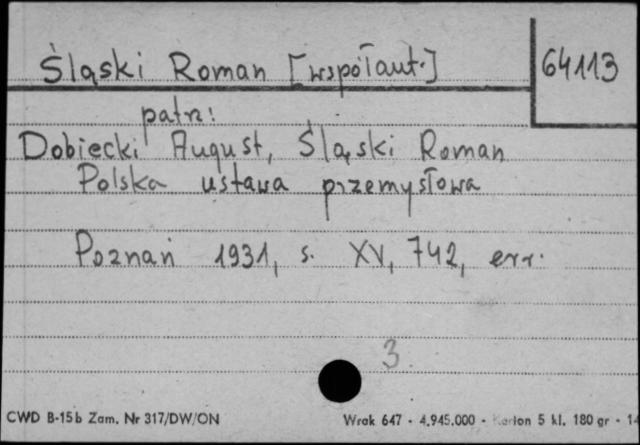 Śląski Roman [współaut.]
64113
patrz:
Dobiecki August, Śląski Roman
Polska ustawa przemysłowa
Poznań 1931, s. XV, 742, err.
3.
CWD B-15b Zam. Nr 317/DW/ON
Wrak 647 - 4.945.000 - Karton 5 kl. 180 gr -